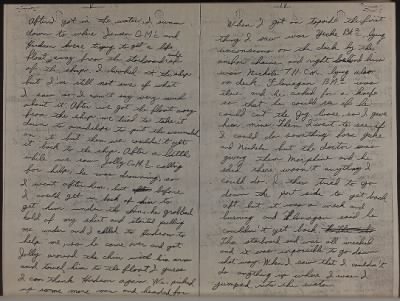 After I got in the water, I swam
down to where Jensen, O.M.2c and
Hudson were trying to get a life
float away from the starboard side
of the ship. I looked at the ship
but I'm still not sure of what
I saw so I won't say very much
about it. After we got the float away
from the ship we tried to take it
down to amidships to put the wounded
on it but then we couldn't get
it back to the ship. After a little
while we saw Jolly C.M.2c calling
for help, he was drowning, so
I went after him, but before
I could get in back of him to
get him under the chin, he grabbed
hold of my shirt and started pulling
me under and I called to Hudson to
help me, so he came over and got
Jolly around the chin with his arm
and towed him to the float. I guess
I can thank Hudson again. We picked
up some more men and headed for
When I got on topside the first
thing I saw was Yerke BM2c lying
unconscious on the deck by the
anchor chain and right behind him
was Nickels T.M. Cox. lying also
on deck. Flanagan B.M.2c was
there and he asked for a knife
so that he could see if he
could cut the Jay lines, so I gave
him mine. Then I went to see if
I could do something for Yerke
and Nickels but the doctor was
giving them Morphine and he
said there wasn't anything I
could do. I then tried to go
down the port side to get back
aft but it was a wreck and
burning and Flanagan said he
couldn't get back
The starboard side was all wrecked
and it was impossible to go down
that way. When I saw that I couldn't
do anything up where I was I
jumped into the water.